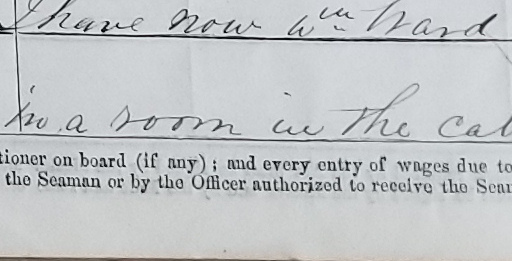 I have now Wm Ward
in a room in the cal
tioner on board (if any); and every entry of wages due to
the Seaman or by the Officer authorized to receive the Sear